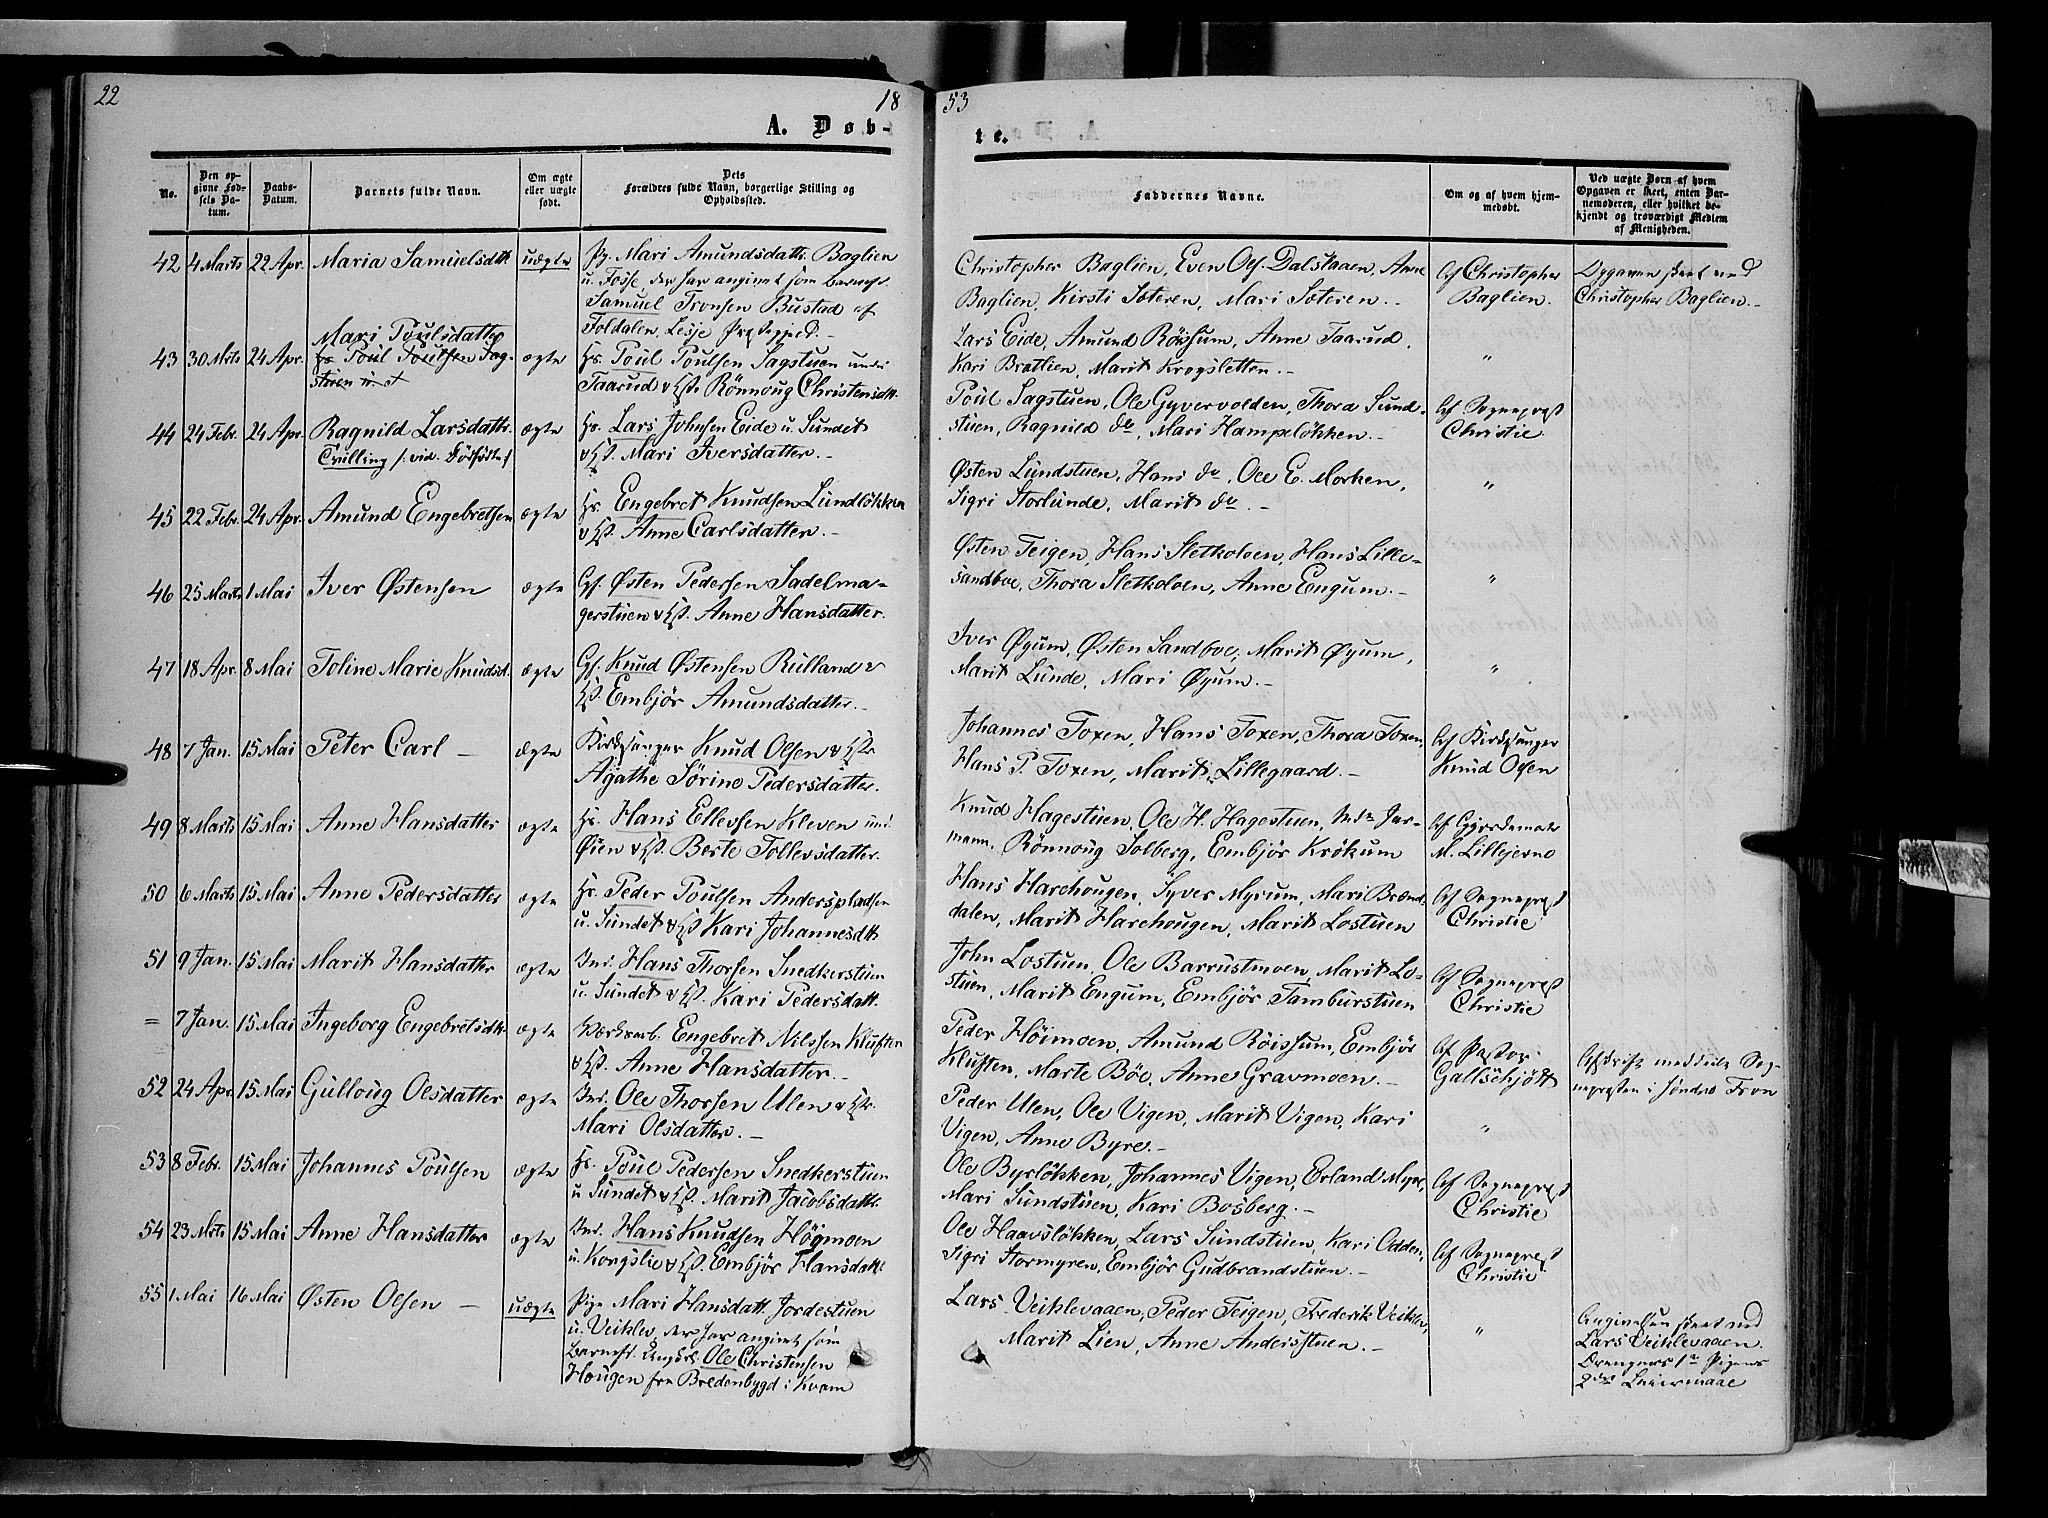 22
18
53
A. Døb-
te.
No.
Den op-
givne Fød-
sels Da-
tum.
Daabs-
Datum.
Barnets fulde Navn.
Om ægte
eller uægte
født.
Dets
Forældres fulde Navn, borgerlige Stilling og
Opholdssted.
Faddernes Navne.
Om og af hvem hjem-
medøbt.
Ved uægte Børn af hvem
Opgaven er skeet, enten Bar-
nemoderen, eller hvilket be-
kjendt og troværdigt Medlem
af Menigheden.
42 4 Marts 22 Apr. Maria Samuelsdtr. uægte Pg. Mari Amundsdattr. Baglien
u. Fosse, der har angivet som Barnef.
Samuel Tronsen Bustad af
Foldalen, Lesje Præstegjeld.
Christopher Baglien, Even Ols. Dalstaaen, Anne
Baglien, Kirsti Sæteren, Mari Sæteren.
Af Christopher
Baglien.
Opgaven skeet ved
Christopher Baglien.
43 30 Mrts 24 Apr. Mari Poulsdatter
Hs. Poul Poulsen Sag-
stuen u. ægte Hs. Poul Poulsen Sagstuen under
Taarud & Hst. Rønnoug Christensdtr.
Lars Eide, Amund Röissum, Anne Taarud,
Kari Bratlien, Marit Krogsletten. "
44 24 Febr. 24 Apr. Ragnild Larsdattr. ægte Hs. Lars Johnsen Eide u. Sundet
Tvilling /: vid. Dödfödte :/ & Hst. Mari Iversdatter.
Poul Sagstuen, Ole Gyvervolden, Thora Sund-
stuen, Ragnild do, Mari Hampeløkken.
Af Sognepræst
Christie
45 22 Febr. 24 Apr. Amund Engebretsen ægte Hs. Engebret Knudsen Lundløkken
& Hst. Anne Carlsdatter.
Østen Lundstuen, Hans do, Ole E. Morken,
Sigri Storlunde, Marit do. "
46 25 Marts 1 Mai Iver Østensen ægte Gf. Østen Pedersen Sadelma-
gerstuen & Hst. Anne Hansdatter.
Østen Teigen, Hans Sletkolven, Hans Lille-
sandboe, Thora Sletkolven, Anne Engum. "
47 18 Apr. 8 Mai Toline Marie Knudsd. ægte Gf. Knud Østensen Rulland &
Hst. Embjör Amundsdatter.
Iver Øyum, Østen Sandboe, Marit Øyum,
Marit Lunde, Mari Øyum. "
48 7 Jan. 15 Mai Peter Carl ægte Kirkesanger Knud Olsen & Hstr.
Agathe Sörine Pedersdatter.
Johannes Toxen, Hans Toxen, Thora Toxen,
Hans P. Toxen, Marit Lillegaard.
Af Kirkesanger
Knud Olsen
49 8 Marts 15 Mai Anne Hansdatter ægte Hs. Hans Ellevsen Kleven und.
Øien & Hst. Berte Tollevsdatter.
Knud Hagestuen, Ole H. Hagestuen, Jar-
mann, Rönnoug Solberg, Embjör Krøkum
Af Gjordemoder
M. Lillejevne
50 6 Marts 15 Mai Anne Pedersdatter ægte Hs. Peder Poulsen Anderspladsen
u. Sundet & Hst Kari Johannesdtr.
Hans Harehougen, Syver Myrum, Mari Brænd-
dalen, Marit Harehougen, Marit Lostuen
Af Sognepræst
Christie
51 9 Jan. 15 Mai Marit Hansdatter ægte Ind. Hans Thorsen Snedkerstuen
u. Sundet & Hst. Kari Pedersdatt.
John Lostuen, Ole Barrustmoen, Marit Lo-
stuen, Marit Engum, Embjör Tambürstuen
Af Sognepræst
Christie
= 7 Jan. 15 Mai Ingeborg Engebretsdtr. ægte Engebret Nilssen Kluften
& Hst. Anne Hansdatter.
Peder Höimoen, Amund Röissum, Embjör
Kluften, Marte Böe, Anne Gravmoen.
Af Pastor
Galtschjött
Afskrift meddelt Sog-
nepresten i Söndre Fron
52 24 Apr. 15 Mai Gulloug Olsdatter ægte Ind. Ole Thorsen Ulen & Hstr.
Mari Olsdatter.
Peder Ulen, Ole Vigen, Marit Vigen, Kari
Vigen, Anne Byre. "
53 8 Febr. 15 Mai Johannes Poulsen ægte Hs. Poul Pedersen Snedkerstuen
u Sundet & Hst. Marit Jacobsdattr.
Ole Byrløkken, Johannes Vigen, Erland Myre,
Mari Sundstuen, Kari Bosberg.
Af Sognepræst
Christie
54 23 Mrts 15 Mai Anne Hansdatter ægte Ind. Hans Knudsen Högmoen
u. Kongslie & Hst. Embjör Hansdatt.
Ole Haavsløkken, Lars Sundstuen, Kari Odden,
Sigri Stormyren, Embjör Gudbrandstuen.
Af Sognepræst
Christie
55 1 Mai 16 Mai Østen Olsen uægte Pige Mari Hansdatt. Jordestuen
u. Veikle, der har angivet som
Barnef. Ungkrl. Ole Christensen
Hougen fra Bredenbygd i Kvam
Lars Veiklevaaen, Peder Teigen, Frederik Veikle,
Marit Lien, Anne Andersstuen. "
Angivelsen skeet ved
Lars Veiklevaaen.
Drengens 1ste Pigens
2det Leiermaal